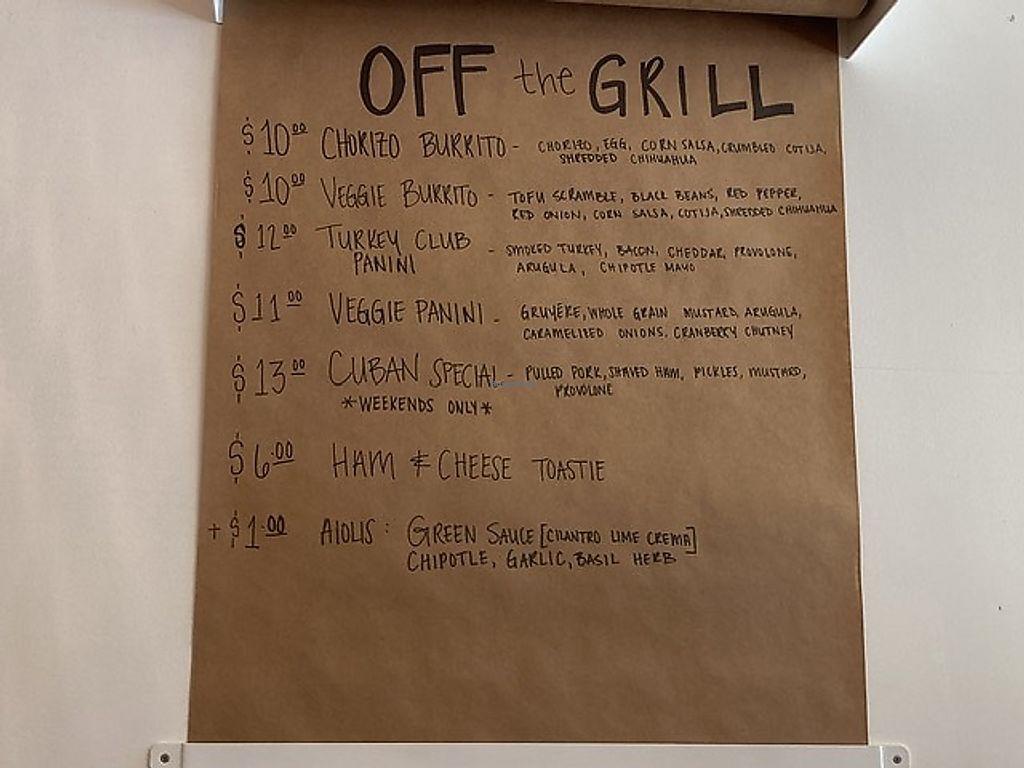 OFF the GRILL
$10.00 CHORIZO BURRITO - CHORIZO, EGG, CORN SALSA, CRUMBLED COTIJA,
SHREDDED CHIHUAHUA
$10.00 VEGGIE BURRITO - TOFU SCRAMBLE, BLACK BEANS, RED PEPPER,
RED ONION, CORN SALSA, COTIJA, SHREDDED CHIHUAHUA
$12.00 TURKEY CLUB - SMOKED TURKEY, BACON, CHEDDAR, PROVOLONE,
PANINI ARUGULA, CHIPOTLE MAYO
$11.00 VEGGIE PANINI - GRUYÈRE, WHOLE GRAIN MUSTARD, ARUGULA,
CARAMELIZED ONIONS, CRANBERRY CHUTNEY
$13.00 CUBAN SPECIAL - PULLED PORK, SHAVED HAM, PICKLES, MUSTARD,
PROVOLONE
*WEEKENDS ONLY*
$6.00 HAM & CHEESE TOASTIE
+ $1.00 AIOLIS: GREEN SAUCE [CILANTRO LIME CREMA]
CHIPOTLE, GARLIC, BASIL HERB